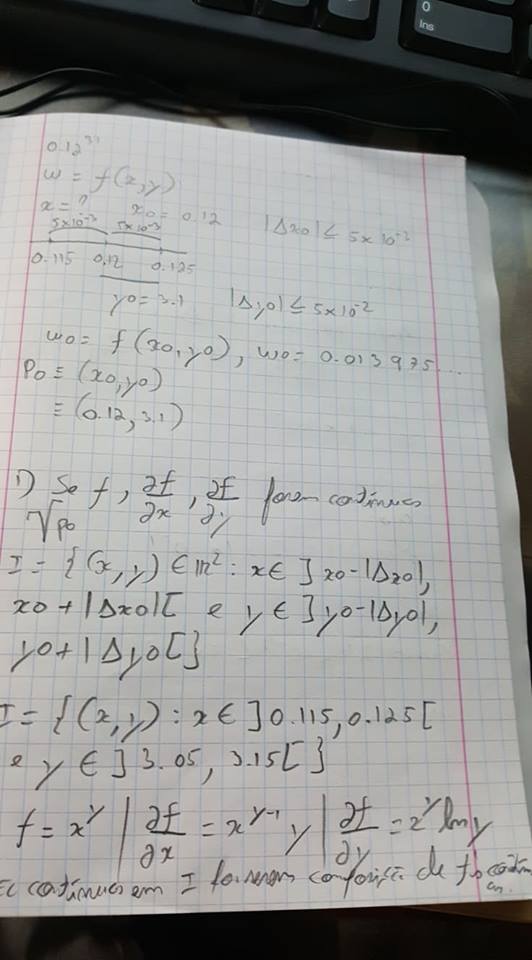 0
Ins
0.12^3.1
w = f(x,y)
x = ? x0 = 0.12 |Δx0| ≤ 5×10^-2
5×10^-3 5×10^-3
0.115 0.12 0.125
y0 = 3.1 |Δy0| ≤ 5×10^-2
w0 = f(x0,y0), w0 = 0.013975...
P0 ≡ (x0,y0)
≡ (0.12, 3.1)
1) Se f, ∂f/∂x, ∂f/∂y forem contínuas
Vp0
I = {(x,y) ∈ IR²: x ∈ ]x0-|Δx0|,
x0+|Δx0|[ e y ∈ ]y0-|Δy0|,
y0+|Δy0[}
I = {(x,y): x ∈ ]0.115, 0.125[
e y ∈ ]3.05, 3.15[}
f = x^y | ∂f/∂x = x^(y-1) y | ∂f/∂y = x^y ln y
contínuas em I de